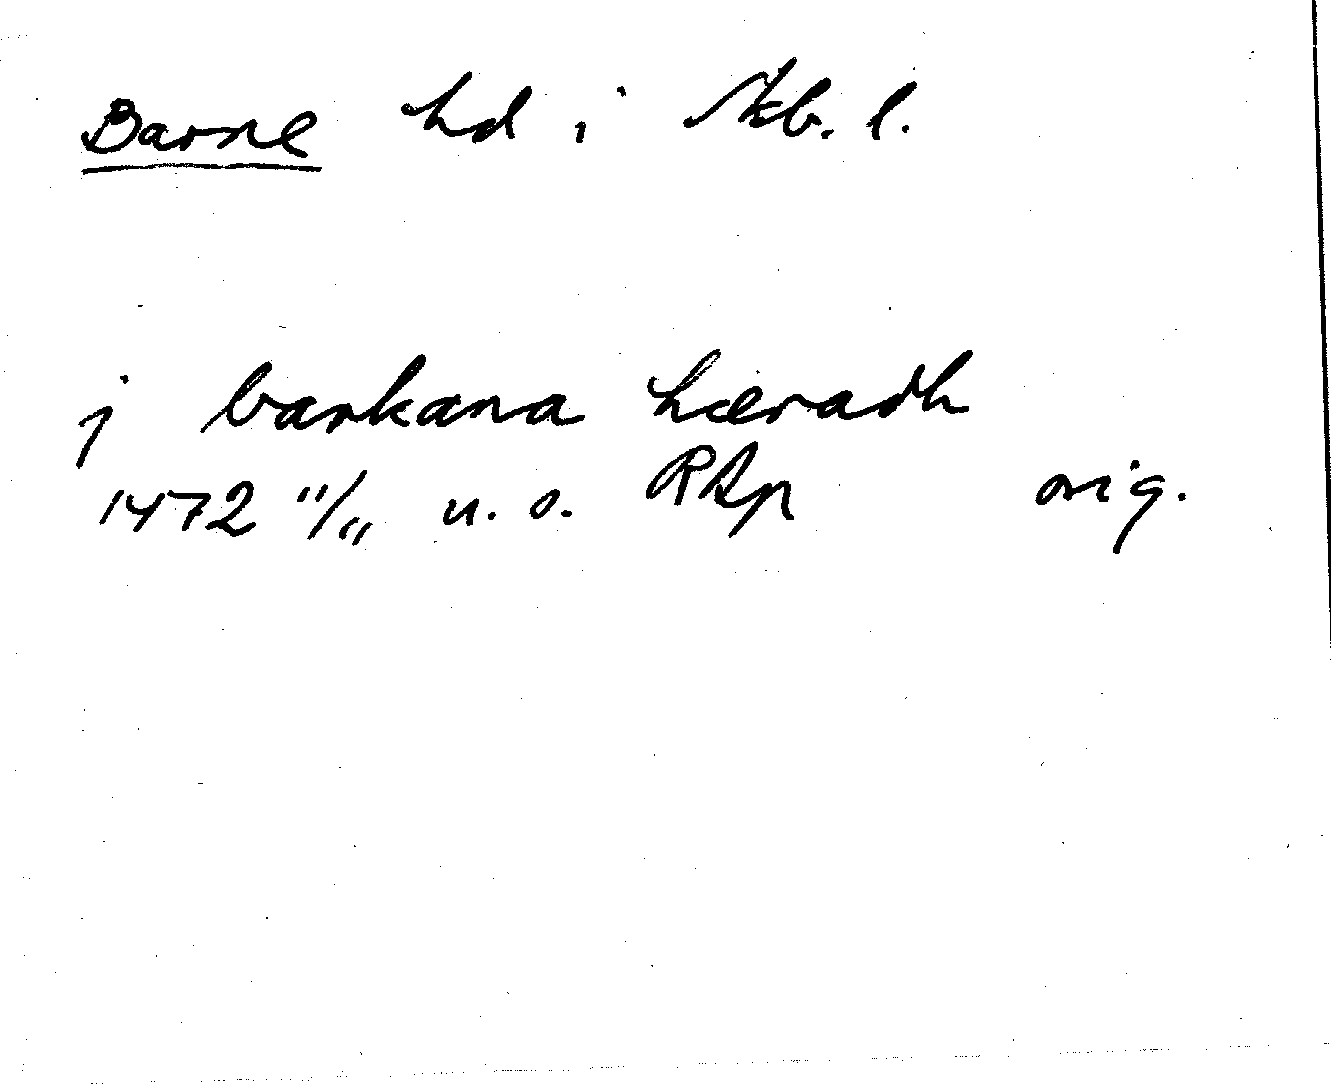 Barne hd i Skb. l.
j barkana hæradh
1472 11/11 u. o. RAp orig.